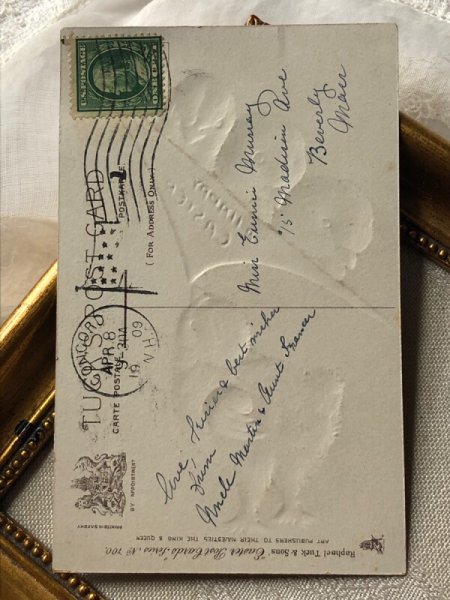 Raphael Tuck & Sons' "Easter Post Cards" Series, No 700.
ART PUBLISHERS TO THEIR MAJESTIES THE KING & QUEEN
BY APPOINTMENT
PRINTED IN SAXONY
TUCK'S POST CARD
CARTE POSTALE
POSTKARTE
(FOR ADDRESS ONLY.)
CONCORD
APR 8
1909
N.H.
U.S. POSTAGE
ONE CENT
Love
& best wishes
From
Uncle Martin & Aunt Frances
Miss Eunice Murray
15 Madison Ave
Beverly
Mass